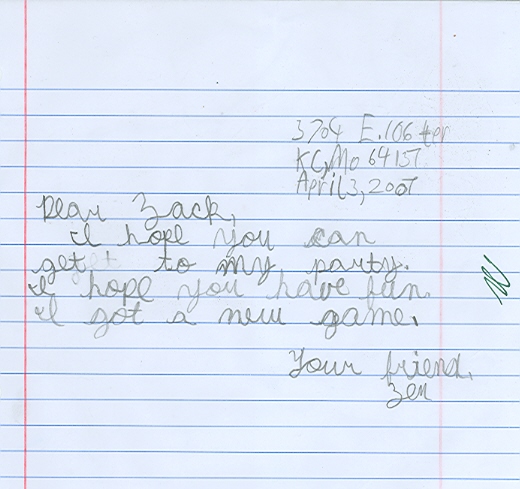 3704 E. 106 ter
KC, Mo 64157
April 3, 2007
Dear Zack,
I hope you can
get to my party.
I hope you have fun.
I got a new game.
Your friend,
Zen